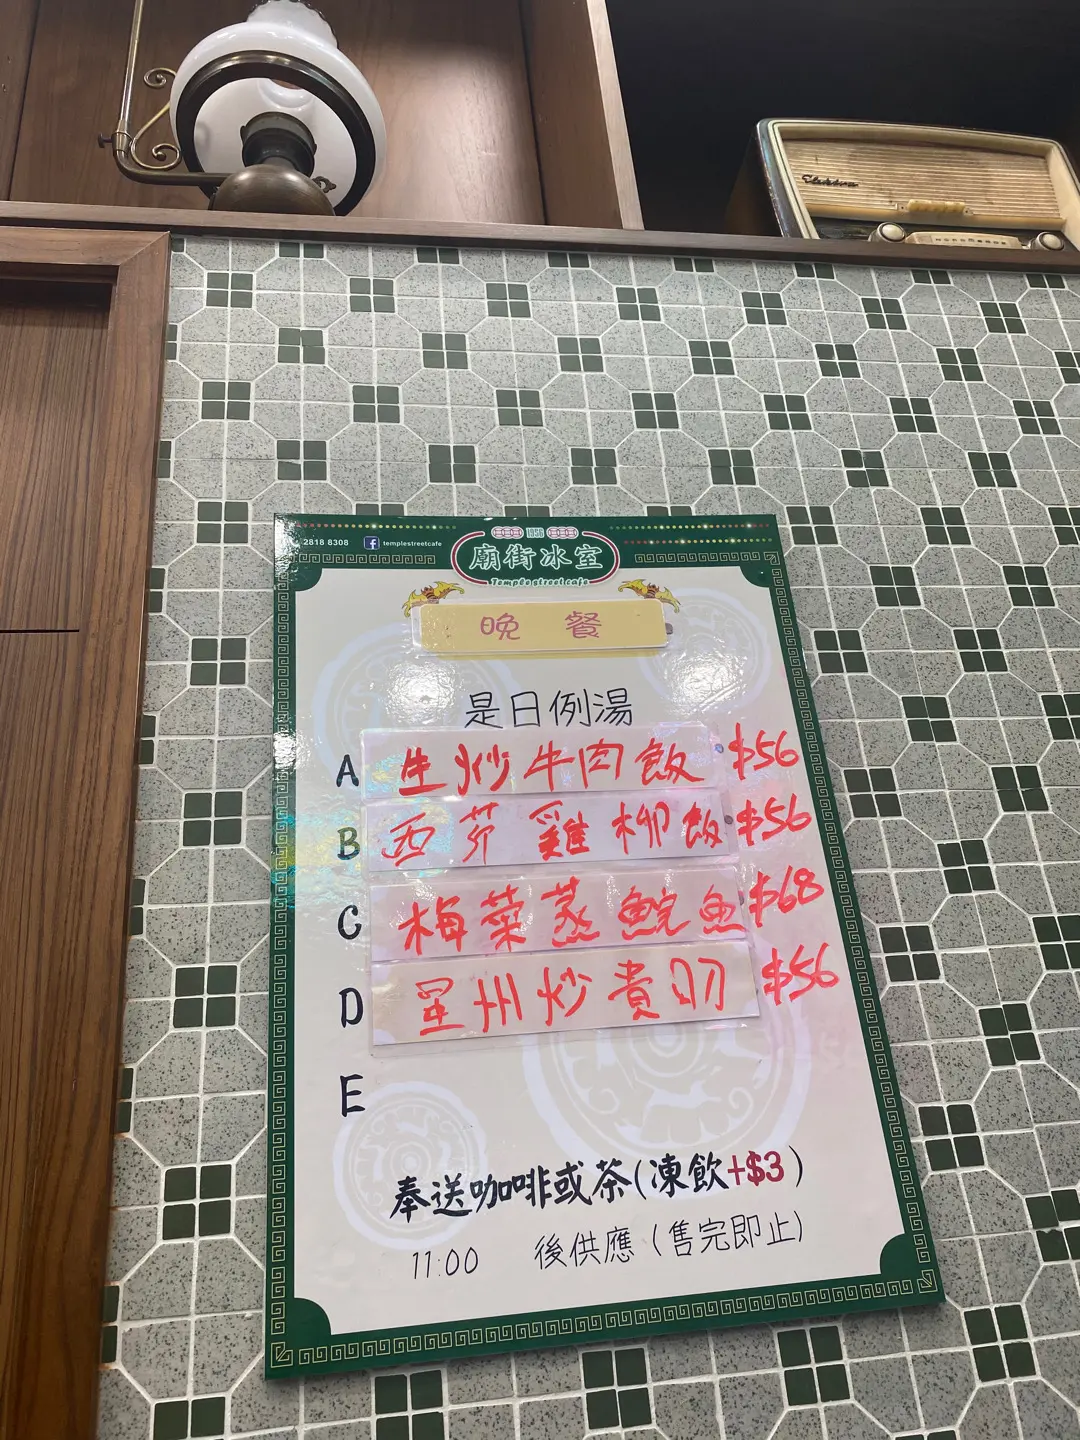 2818 8308 templestreetcafe
1956
廟街冰室
Temple street cafe
晚 餐
是日例湯
A 生炒牛肉飯 $56
B 西芹雞柳飯 $56
C 梅菜蒸鯇魚 $68
D 星州炒貴刁 $56
E
奉送咖啡或茶(凍飲+$3)
11:00 後供應(售完即止)